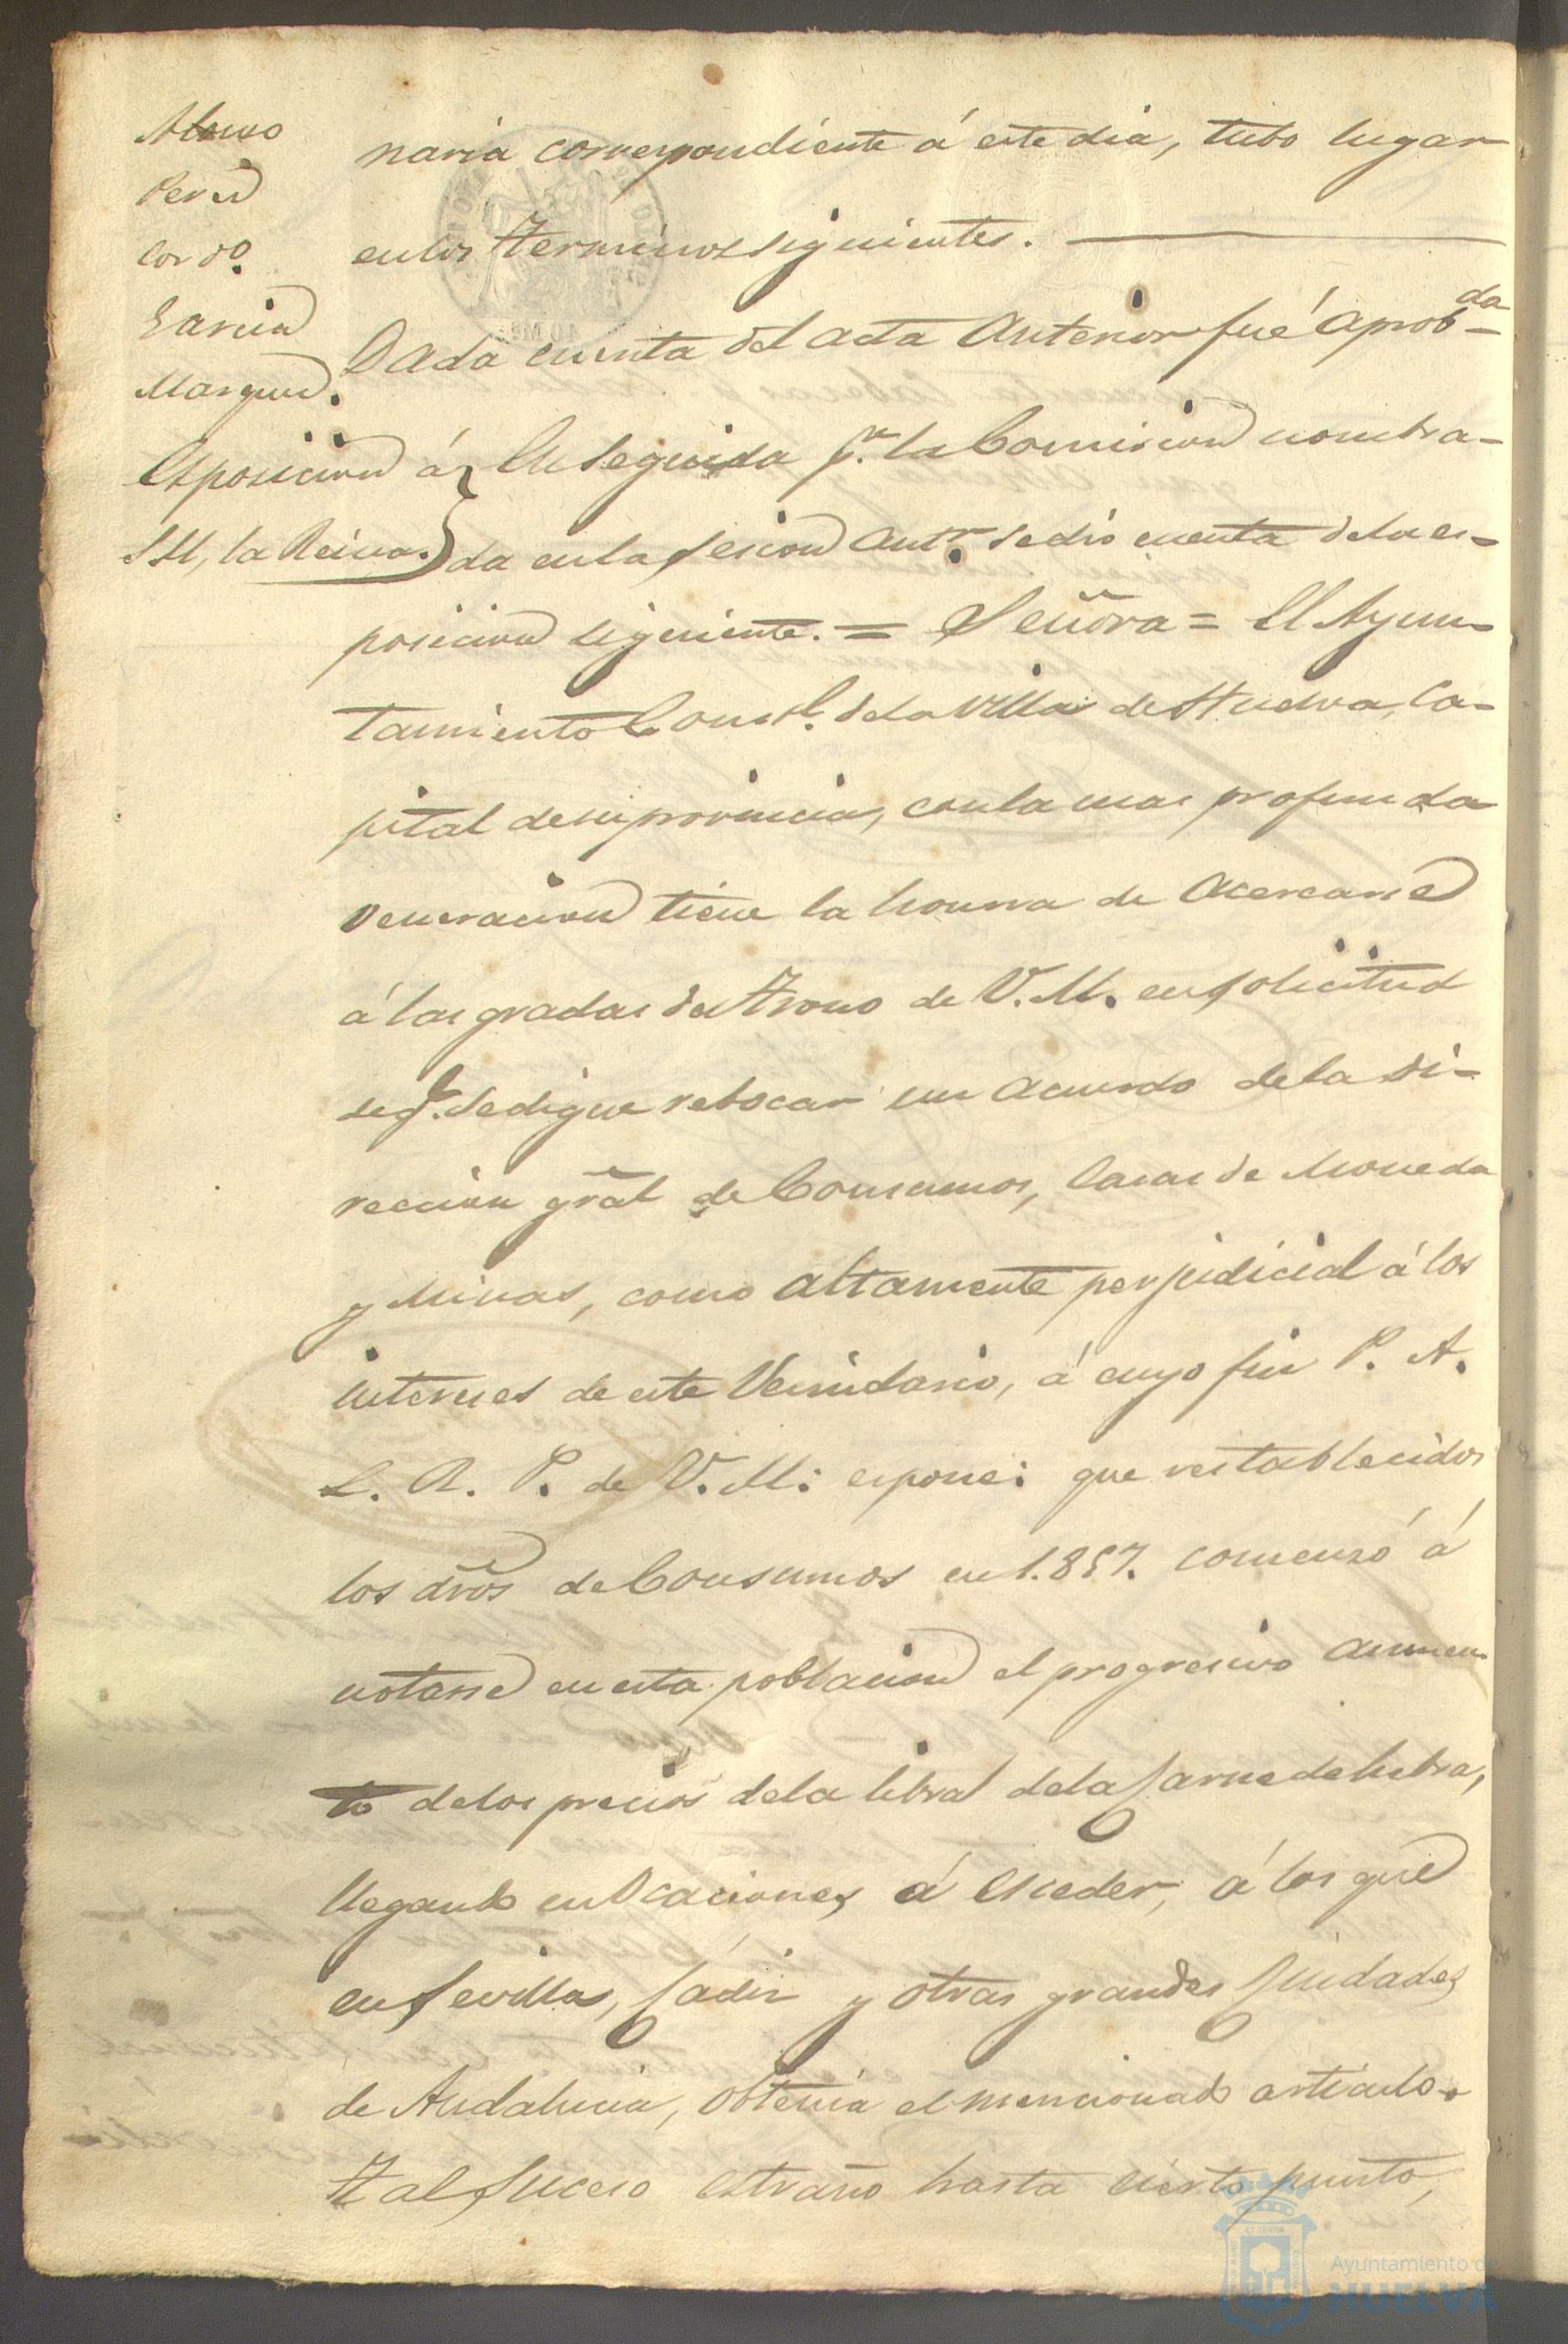 Alonso
Perez
Cordo.
Garcia
Marquez.
Esposicion á
S.M, la Reina.
naria correspondiente á este dia, tubo lugar
en los terminos siguientes.
Dada cuenta del acta anterior fué aprobda
En seguida pr. la Comision nombra-
da en la sesion antr. se dió cuenta de la es-
posicion siguiente. = Señora = El Ayun-
tamiento Constl. de la villa de Huelva, Ca-
pital de su provincia, con la mas profunda
veneracion tiene la honrra de acercarse
á las gradas del trono de V. M. en solicitud
de q. se digne rebocar un acuerdo de la Di-
reccion gral de Consumos, Casas de Moneda
y Minas, como altamente perjudicial á los
intereses de este Vecindario, á cuyo fin P. A.
L. R. P. de V. M: espone: que restablecidos
los dros de Consumos en 1.857. comenzó á
notarse en esta poblacion el progresivo aumen-
to de los precios de la libra de la Carne de hebra,
llegando en Ocaciones, á esceder, á los que
en Sevilla, Cadiz y otras grandes Ciudades
de Andalucia, obtenia el mencionado articulo.
Tal suceso estraño hasta cierto punto,
Ayuntamiento de
HUELVA